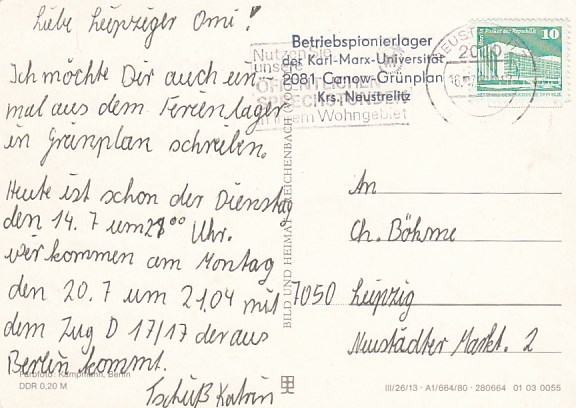 Liebe Leipziger Omi!
Ich möchte Dir auch ein-
mal aus dem Ferienlager
in Grünplan schreiben.
Heute ist schon der Dienstag
den 14. 7 um 00 Uhr.
wir kommen am Montag
den 20. 7 um 21.04 mit
dem Zug D 17/17 der aus
Berlin kommt.
Tschüß Katrin
Farbfoto: Kampmann, Berlin
DDR 0,20 M
BILD UND HEIMAT REICHENBACH
Betriebspionierlager
der Karl-Marx-Universität
2081 Canow-Grünplan
Krs. Neustrelitz
Nutzen Sie
unsere
ÖFFENTLICHEN
Wohngebiet
2080
10
An
Ch. Böhme
7050 Leipzig
Neustädter Markt. 2
III/26/13 · A1/664/80 · 280664 01 03 0055